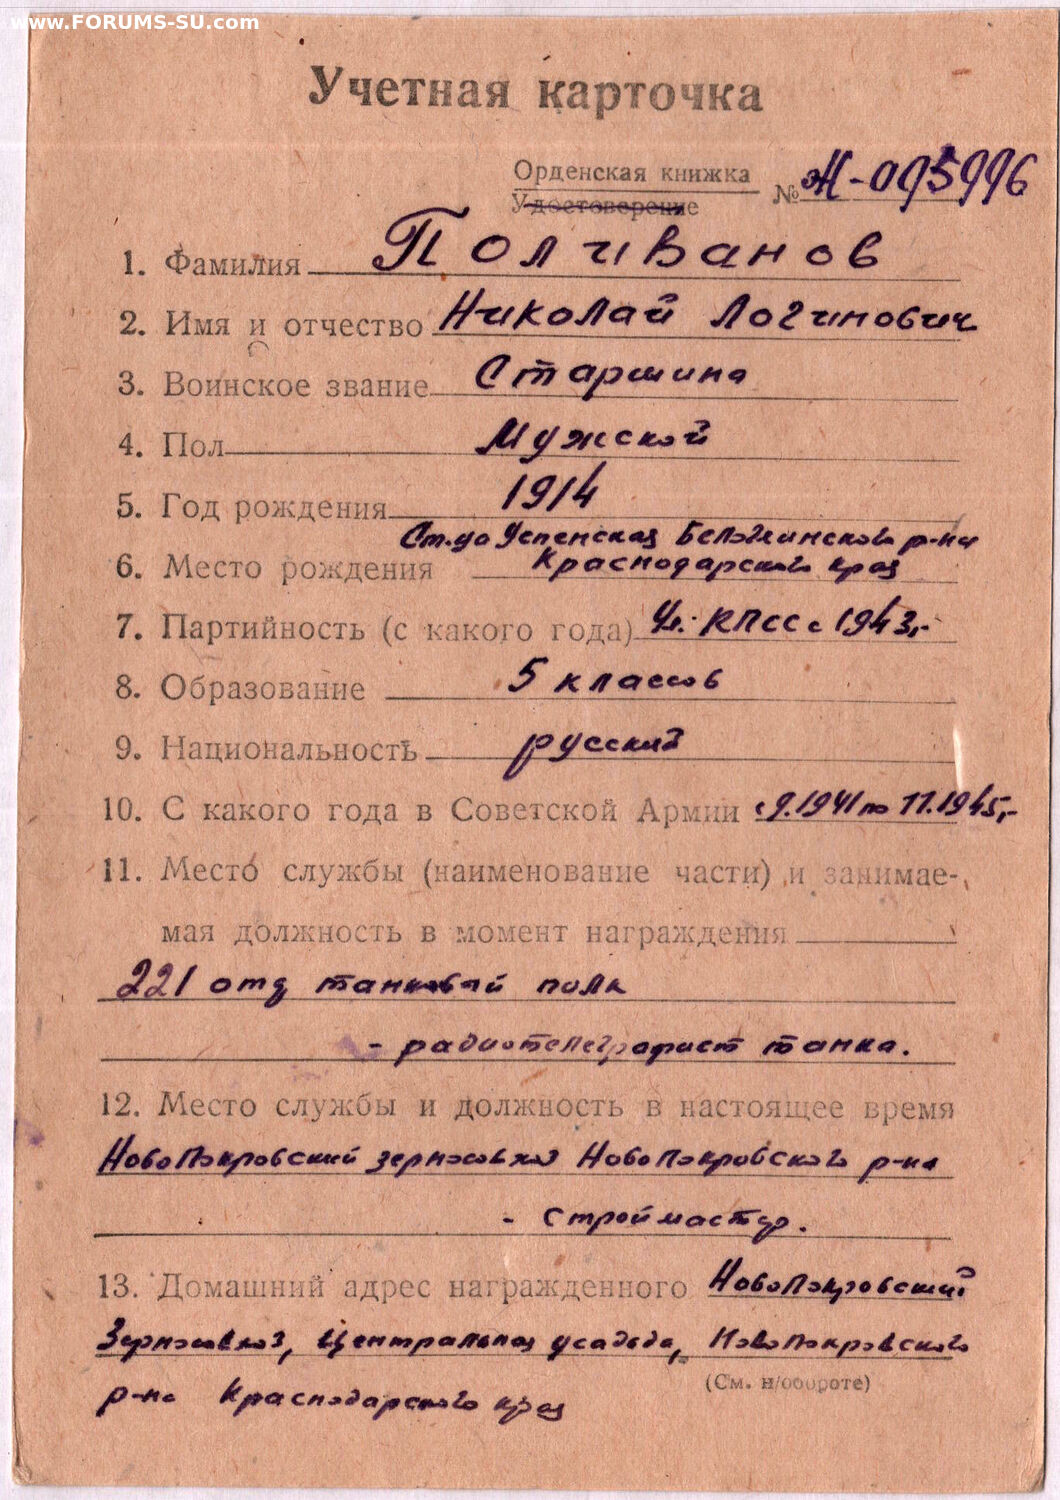 www.FORUMS-SU.com
Учетная карточка
Орденская книжка
Удостоверение
№ Ж-095996
1. Фамилия Поливанов
2. Имя и отчество Николай Логинович
3. Воинское звание Старшина
4. Пол Мужской
5. Год рождения 1914
Ст. Успенская Белоглинского р-на
6. Место рождения Краснодарского края
7. Партийность (с какого года) Чл. КПСС с 1943,-
8. Образование 5 классов
9. Национальность русский
10. С какого года в Советской Армии с 9.1941 по 11.1945,-
11. Место службы (наименование части) и занимае-
мая должность в момент награждения
221 отд танковый полк
- радиотелеграфист танка.
12. Место службы и должность в настоящее время
Новопокровский зерносовхоз Новопокровского р-на
- строймастер.
13. Домашний адрес награжденного Новопокровский
Зерносовхоз, Центральная усадьба, Новопокровского
(См. н/обороте)
р-на Краснодарского края